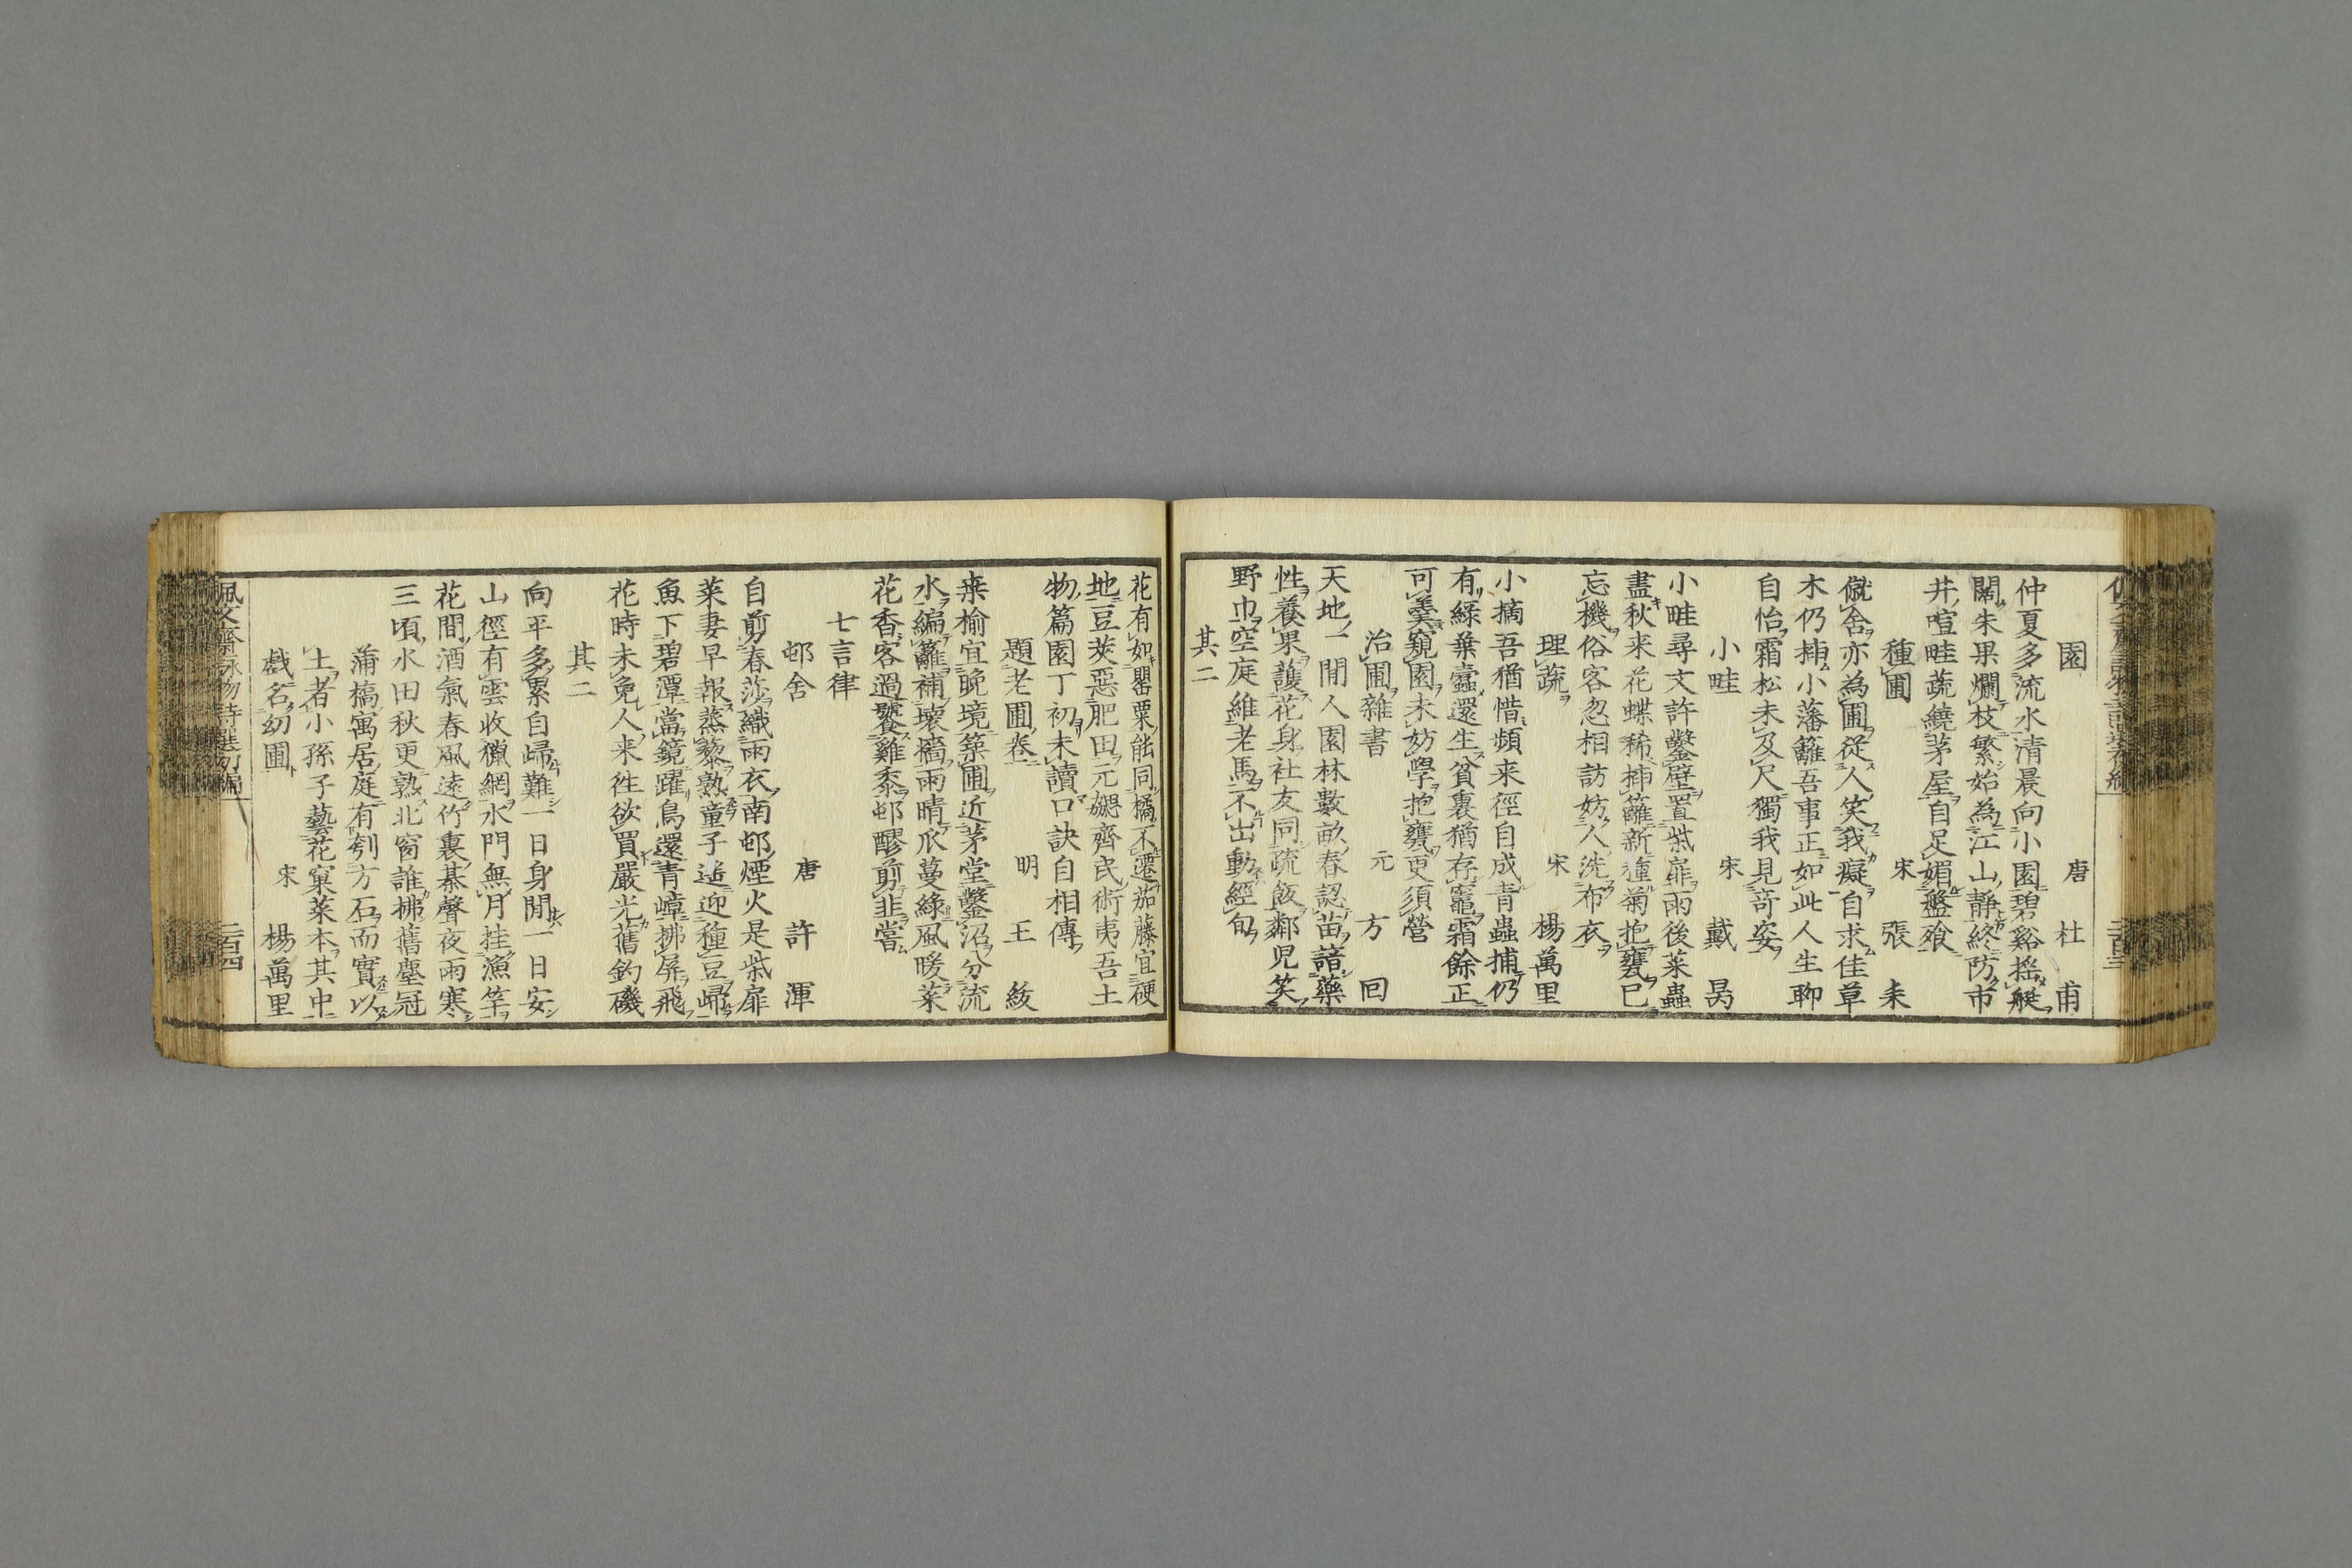 園　唐　杜　甫
仲夏多流水清晨向小園碧谿搖艇
闊朱果爛枝繁始為江山靜終防市
井喧畦蔬繞茅屋自足媚盤飧
種圃　宋　張　耒
僦舍亦為圃從人笑我癡自求佳草
木仍揷小藩籬吾事正如此人生聊
自怡霜松未及尺獨我見竒姿
小畦　宋　戴　昺
小畦尋丈許鑿壁置柴扉雨後菜蟲
盡秋来花蝶稀揷籬新種菊抱甕已
忘機俗客忽相訪妨人洗布衣
理蔬　宋　楊萬里
小摘吾猶惜頻来徑自成青蟲捕仍
有緑葉蠹還生貧裏猶存竈霜餘正
可羹窺園未妨學抱甕更須營
治圃雜書　元　方　回
天地一閒人園林數畝春認苗諳藥
性養果護花身社友同疏飯鄰児笑
野巾空庭維老馬不出動經旬
其二
花有如罌粟能同橘不遷茄藤宜硬
地豆莢惡肥田元勰齊民術夷吾土
物篇園丁初未讀口訣自相傳
題老圃卷　明　王　紱
桒榆宜晩境築圃近茅堂鑿沼分流
水編籬補壞牆雨晴瓜蔓綠風暖菜
花香客過饗雞黍邨醪剪韭嘗
七言律
邨舍　唐　許　渾
自剪春莎織雨衣南邨煙火是柴扉
萊妻早報蒸藜熟童子遥迎種豆歸
魚下碧潭當鏡躍鳥還青嶂拂屏飛
花時未免人来徃欲買嚴光舊釣磯
其二
向平多累自歸難一日身閒一日安
山徑有雲收獵網水門無月挂漁竿
花間酒氣春風遠竹裏棊聲夜雨寒
三頃水田秋更熟北窗誰拂舊塵冠
蒲橋寓居庭有刳方石而實以
土者小孫子藝花窠菜本其中
戲名幼圃　宋　楊萬里
佩文齋詠物詩選初編
二百四
二百三